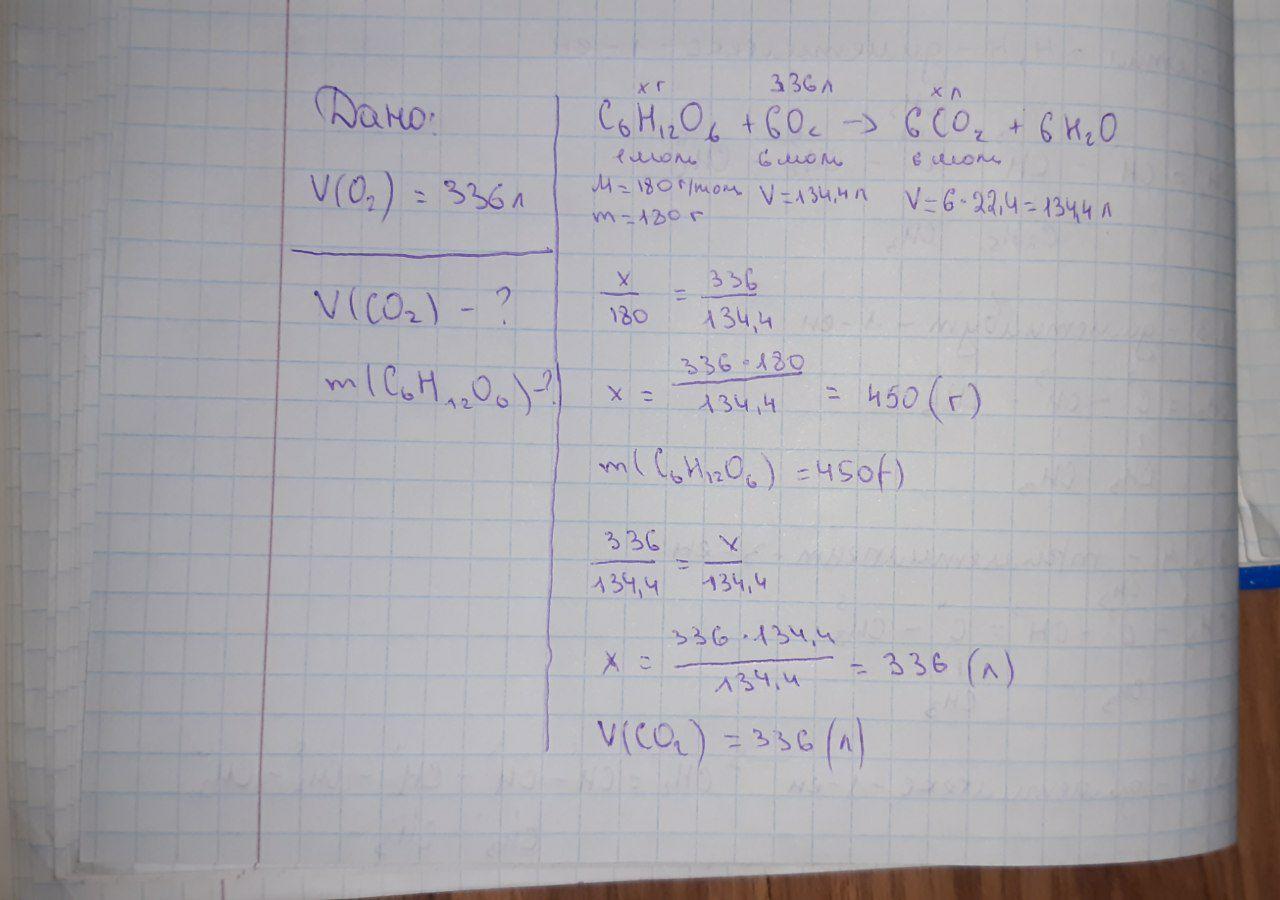 Дано:
V(O₂) = 336л
V(CO₂) - ?
m(C₆H₁₂O₆)-?
xг 336л xл
C₆H₁₂O₆ + 6O₂ → 6CO₂ + 6H₂O
1моль 6моль 6моль
M=180г/моль V=134,4л V=6·22,4=134,4л
m=180г
x/180 = 336/134,4
x = 336·180/134,4 = 450(г)
m(C₆H₁₂O₆) = 450(г)
336/134,4 = x/134,4
x = 336·134,4/134,4 = 336(л)
V(CO₂) = 336(л)